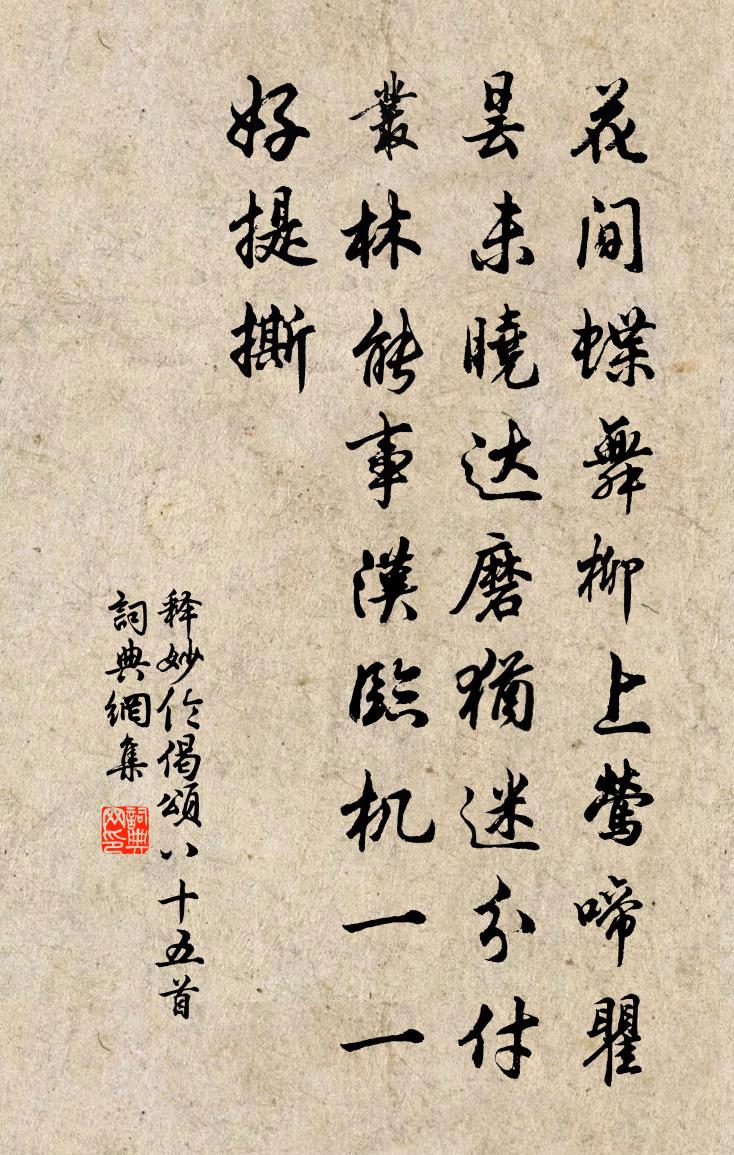 花间蝶舞柳上莺啼瞿
昙未曉达磨猶迷分付
叢林能事漢臨机一一
好提撕
释妙伦偈頌八十五首
詞典網集
詞典網印